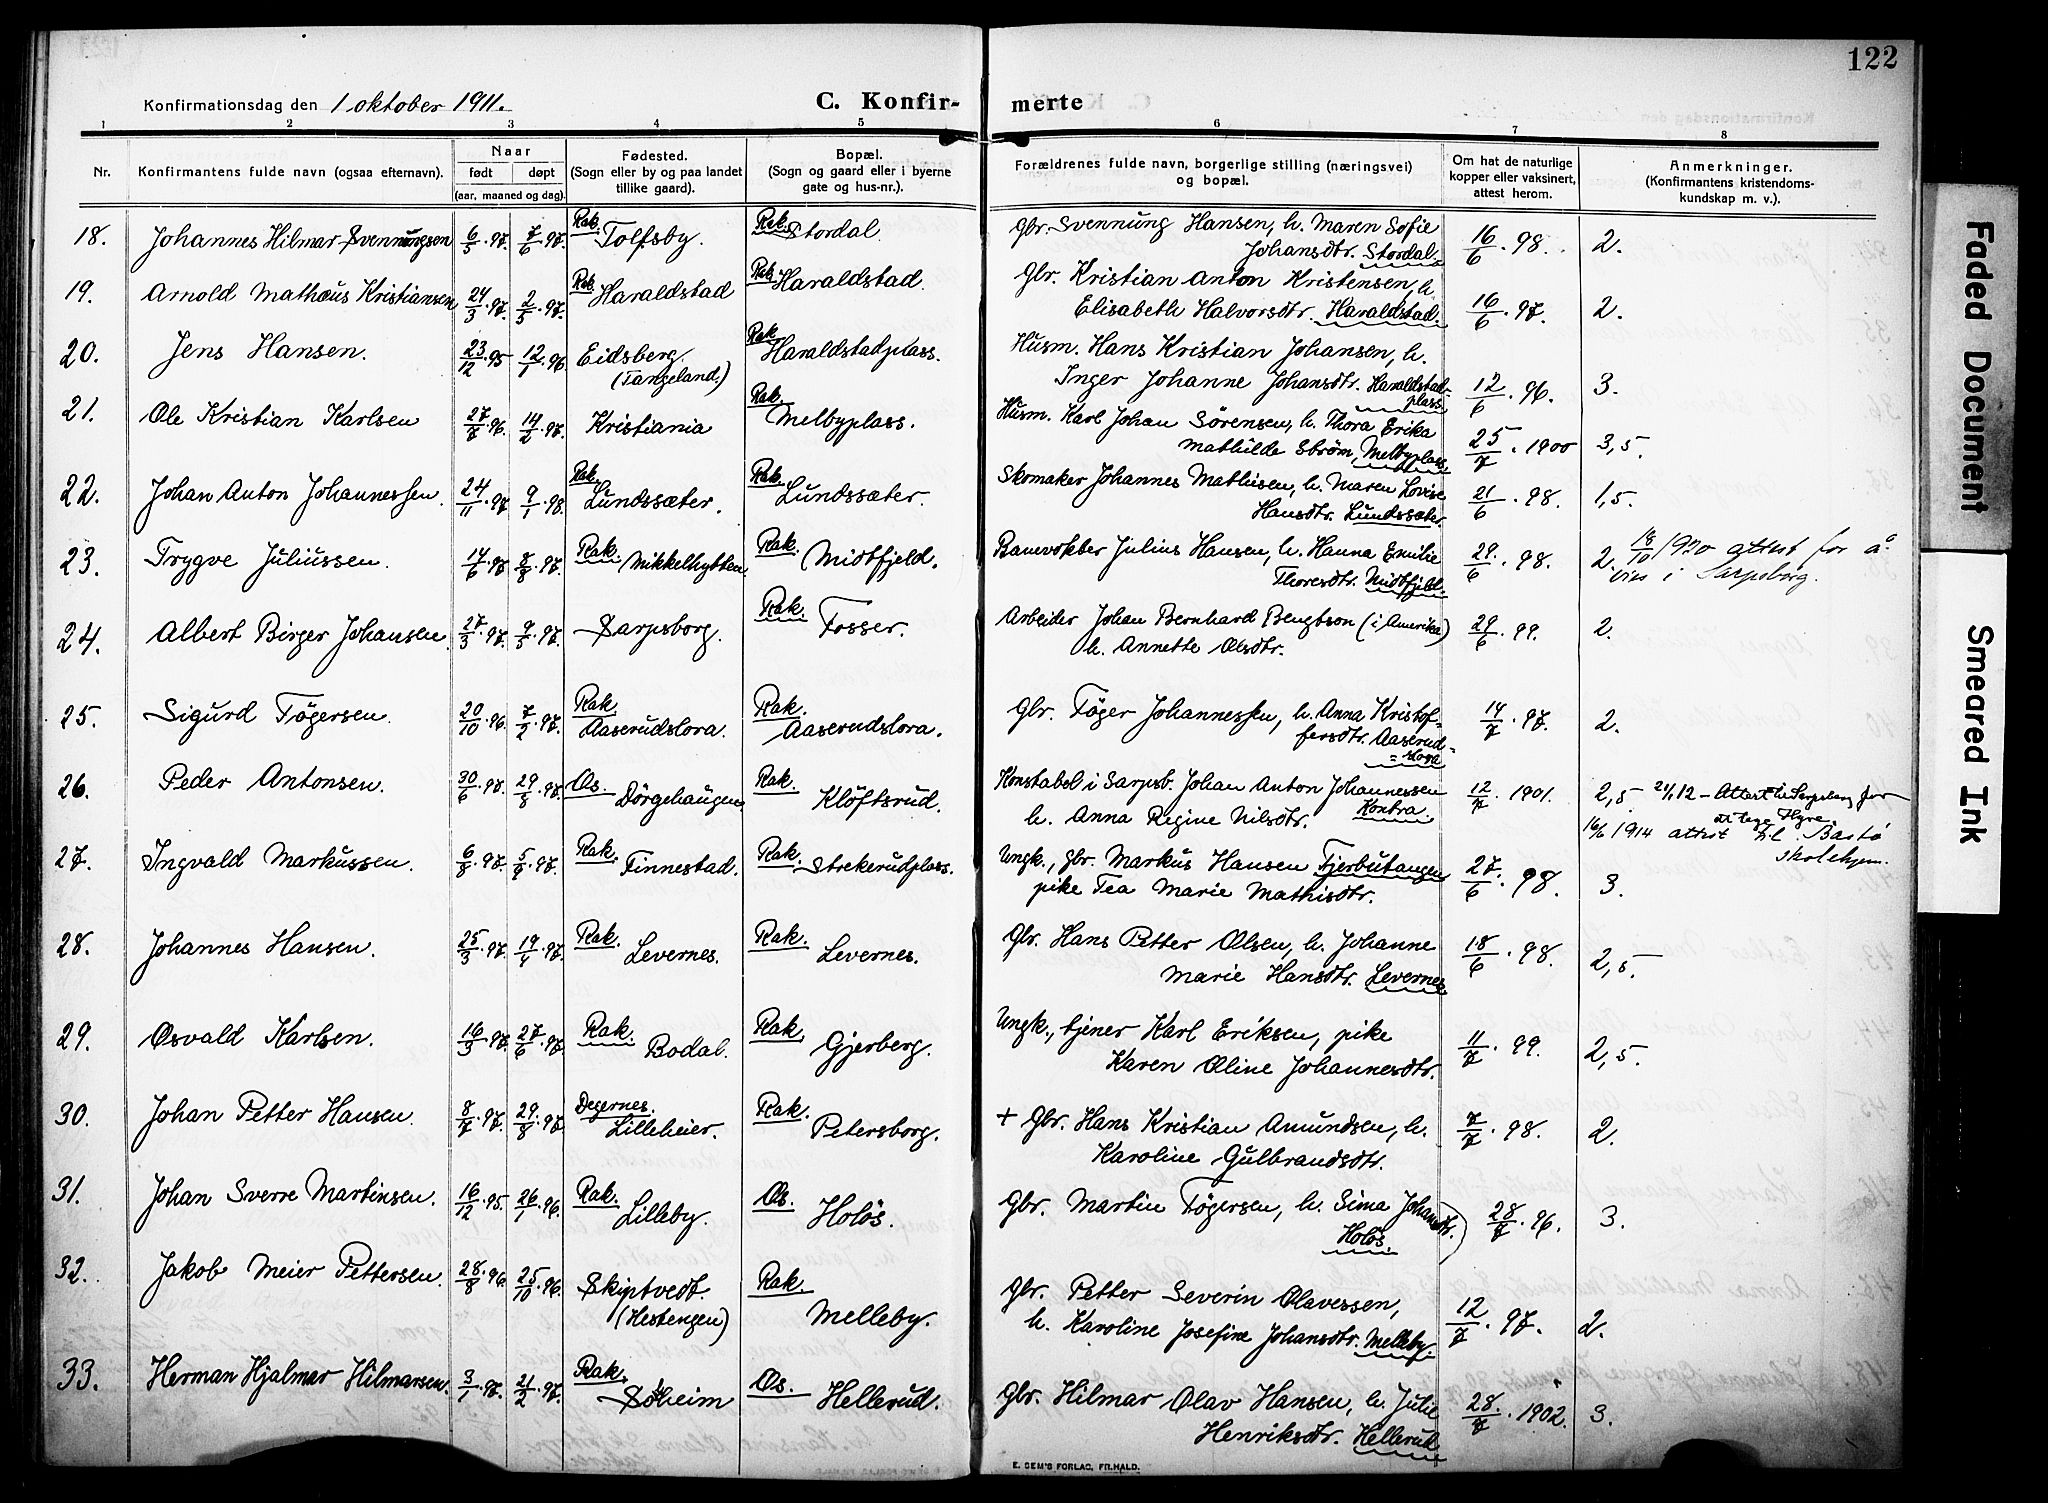 122
Konfirmationsdag den 1 oktober 1911.
C. Konfirmerte
1 2 3 4 5 6 7 8
Nr.
Konfirmantens fulde navn (ogsaa efternavn).
Naar
født døpt
(aar, maaned og dag).
Fødested.
(Sogn eller by og paa landet
tillike gaard).
Bopæl.
(Sogn og gaard eller i byerne
gate og hus-nr.).
Forældrenes fulde navn, borgerlige stilling (næringsvei)
og bopæl.
Om hat de naturlige
kopper eller vaksinert,
attest herom.
Anmerkninger.
(Konfirmantens kristendoms-
kundskap m. v.).
18. Johannes Hilmar Svenningsen 6/5.97. 7/6.97. Rak. Tolfsby. Rak. Stordal. Gbr. Svennung Hansen, h. Maren Sofie
Johansdtr. Stordal. 16/6.98. 2.
19. Arnold Mathæus Kristiansen 24/3.97. 2/5.97. Rak. Haraldstad Rak. Haraldstad. Gbr. Kristian Anton Kristensen, h.
Elisabeth Halvorsdtr. Haraldstad. 16/6.97. 2.
20. Jens Hansen. 23/12.95 12/1.96. Eidsberg. Rak. Haraldstadplass. Husm. Hans Kristian Johansen, h.
(Tangeland.) Inger Johanne Johansdtr. Haraldstad-
plass. 12/6.96. 3.
21. Ole Kristian Karlsen 27/7.96. 14/2.97. Kristiania Rak. Melbyplass. Husm. Karl Johan Sørensen, h. Thora Erika
Mathilde Strøm, Melbyplass. 25/7.1900 3,5.
22. Johan Anton Johannessen. 24/11.97 9/1.98. Rak. Lundssæter. Rak. Lundssæter. Skomaker Johannes Mathisen, h. Maren Lovise
Hansdtr. Lundssæter. 21/6.98. 1,5.
23. Trygve Juliussen. 14/6.97 8/8.97. Rak. Mikkelhytten. Rak. Midtfjeld. Banevokter Julius Hansen, h. Hanna Emilie
Thoresdtr. Midtfjeld. 29/6.98. 2. 18/10 1920 attest for å
vies i Sarpsborg.
24. Albert Birger Johansen 27/3.97. 9/5.97. Sarpsborg. Rak. Fosser. Arbeider Johan Bernhard Bengtson (i Amerika)
h. Annette Olsdtr. 29/6.99. 2.
25. Sigurd Tøgersen. 20/10.96. 7/2.97. Rak. Aaserudslora. Rak. Aaserudslora. Gbr. Tøger Johannessen, h. Anna Kristof-
fersdtr. Aaserud-
=slora 14/7.97. 2.
26. Peder Antonsen. 30/6.97. 29/8.97. Os. Dörgehaugen Rak. Klöftsrud. Konstabel i Sarpsb. Johan Anton Johannessen
h. Anna Regine Nilsdtr. Kontra. 12/7.1901. 2,5. 21/1 12 – Attest t. Sarpsborg for
at tage Hyre.
16/6 1914 attest til Bastö
skolehjem.
27. Ingvald Markussen. 6/8.97. 5/9.97. Rak. Finnestad. Rak. Strekerudplass. Ungk., gbr. Markus Hansen Fjerbutangen
pike Tea Marie Mathisdtr. 27/6.98. 3.
28. Johannes Hansen. 25/3.97. 19/4.97. Rak. Levernes. Rak. Levernes. Gbr. Hans Petter Olsen, h. Johanne
Marie Hansdtr. Levernes. 18/6.98. 2,5.
29. Osvald Karlsen. 16/3.97. 27/6.97. Rak. Bodal. Rak. Gjerberg. Ungk., tjener Karl Eriksen, pike
Karen Oline Johannesdtr. 11/7.99. 2,5.
30. Johan Petter Hansen. 8/7.97. 29/8.97. Degernes. Lilleheier. Rak. Petersborg. + Gbr. Hans Kristian Amundsen, h.
Karoline Gulbrandsdtr. 7/7.98. 2.
31. Johan Sverre Martinsen. 16/12.95. 26/1.96. Rak. Lilleby. Os. Holøs. Gbr. Martin Tøgersen, h. Sima Johansdtr.
Holøs. 28/7.96. 3.
32. Jakob Meier Pettersen. 28/8.96. 25/10.96. Skiptvedt. Rak. Melleby. Gbr. Petter Severin Olavessen,
(Hestengen) h. Karoline Josefine Johansdtr. Melleby. 12/7.97. 2.
33. Herman Hjalmar Hilmarsen. 3/1.97. 21/2.97. Rak. Solheim Os. Hellerud. Gbr. Hilmar Olav Hansen, h. Julie
Henriksdtr. Hellerud. 28/7.1902. 3.
E. SEM'S FORLAG, FR.HALD.
Faded Document
Smeared Ink